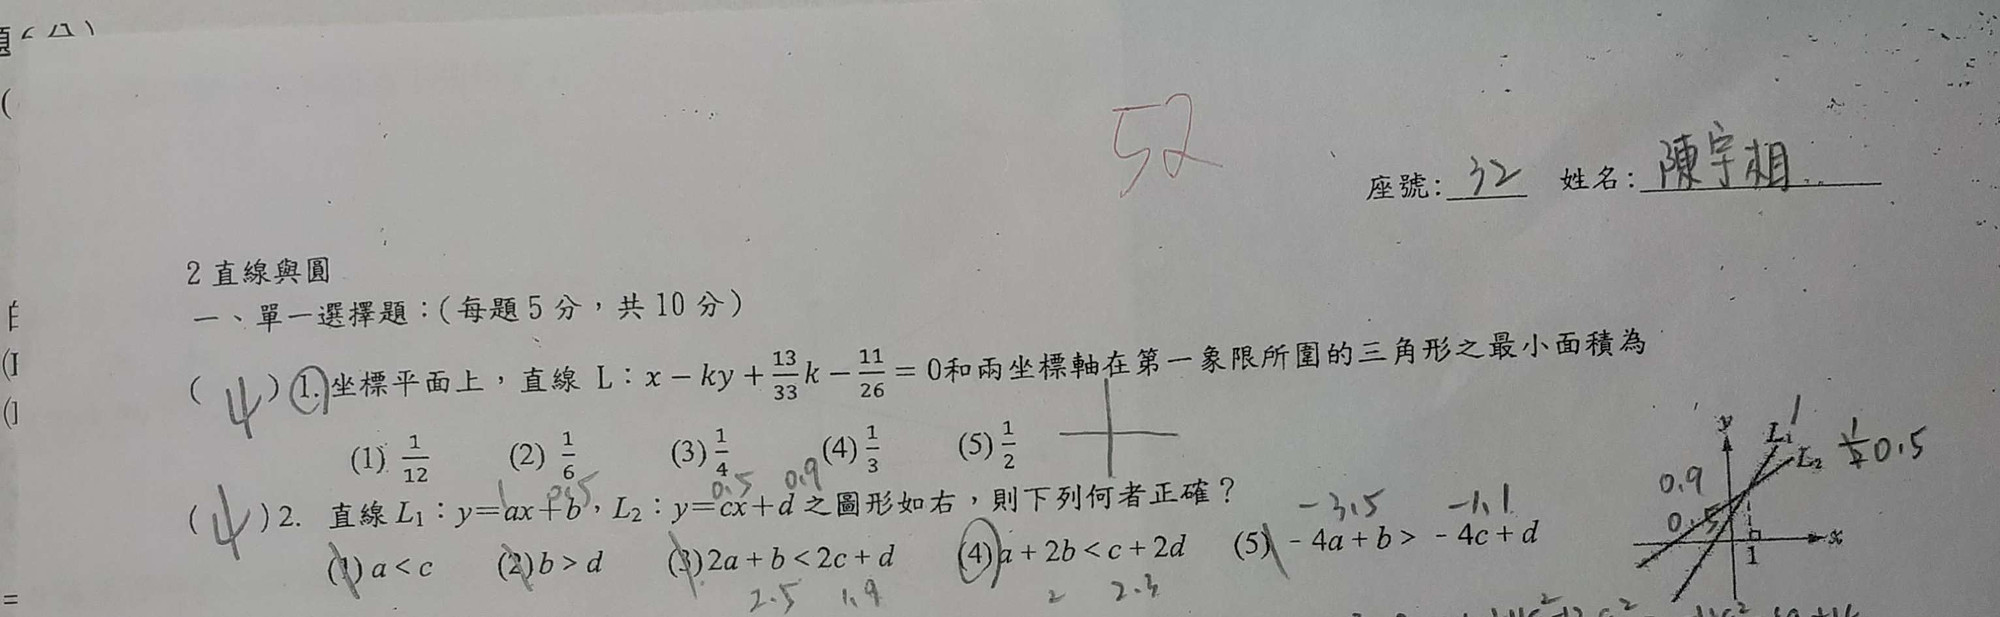 52
座號：32 姓名：陳宇相
2 直線與圓
一、單一選擇題：(每題 5 分，共 10 分)
( 4 ) 1. 坐標平面上，直線 L：x − ky + 13/33 k − 11/26 = 0和兩坐標軸在第一象限所圍的三角形之最小面積為
(1) 1/12 (2) 1/6 (3) 1/4 (4) 1/3 (5) 1/2
1 0.5 0.5 0.9
( 4 ) 2. 直線 L₁：y=ax+b，L₂：y=cx+d 之圖形如右，則下列何者正確？
-3.5 -1.1
(1) a < c (2) b > d (3) 2a + b < 2c + d (4) a + 2b < c + 2d (5) - 4a + b > - 4c + d
2.5 1.9 2 2.3
y L₁ 1
L₂ 1/2 0.5
0.9
0.5
x
1